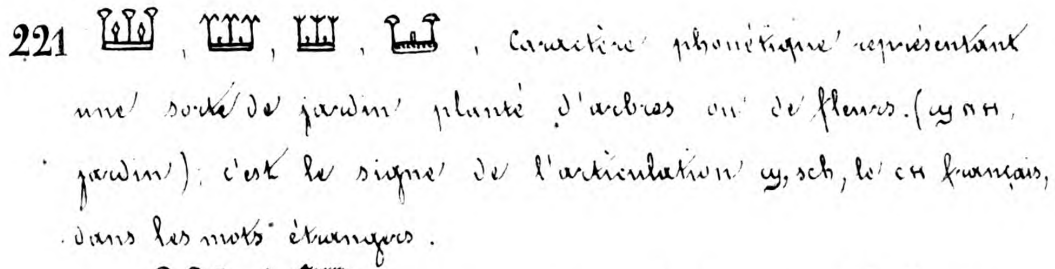 221 𓆷 , 𓆷 , 𓆷 , 𓆷 , Caractère phonétique représentant
une sorte de jardin planté d'arbres ou de fleurs. (ϣⲏⲏ,
jardin); c'est le signe de l'articulation ϣ, sch, le CH français,
dans les mots étrangers.